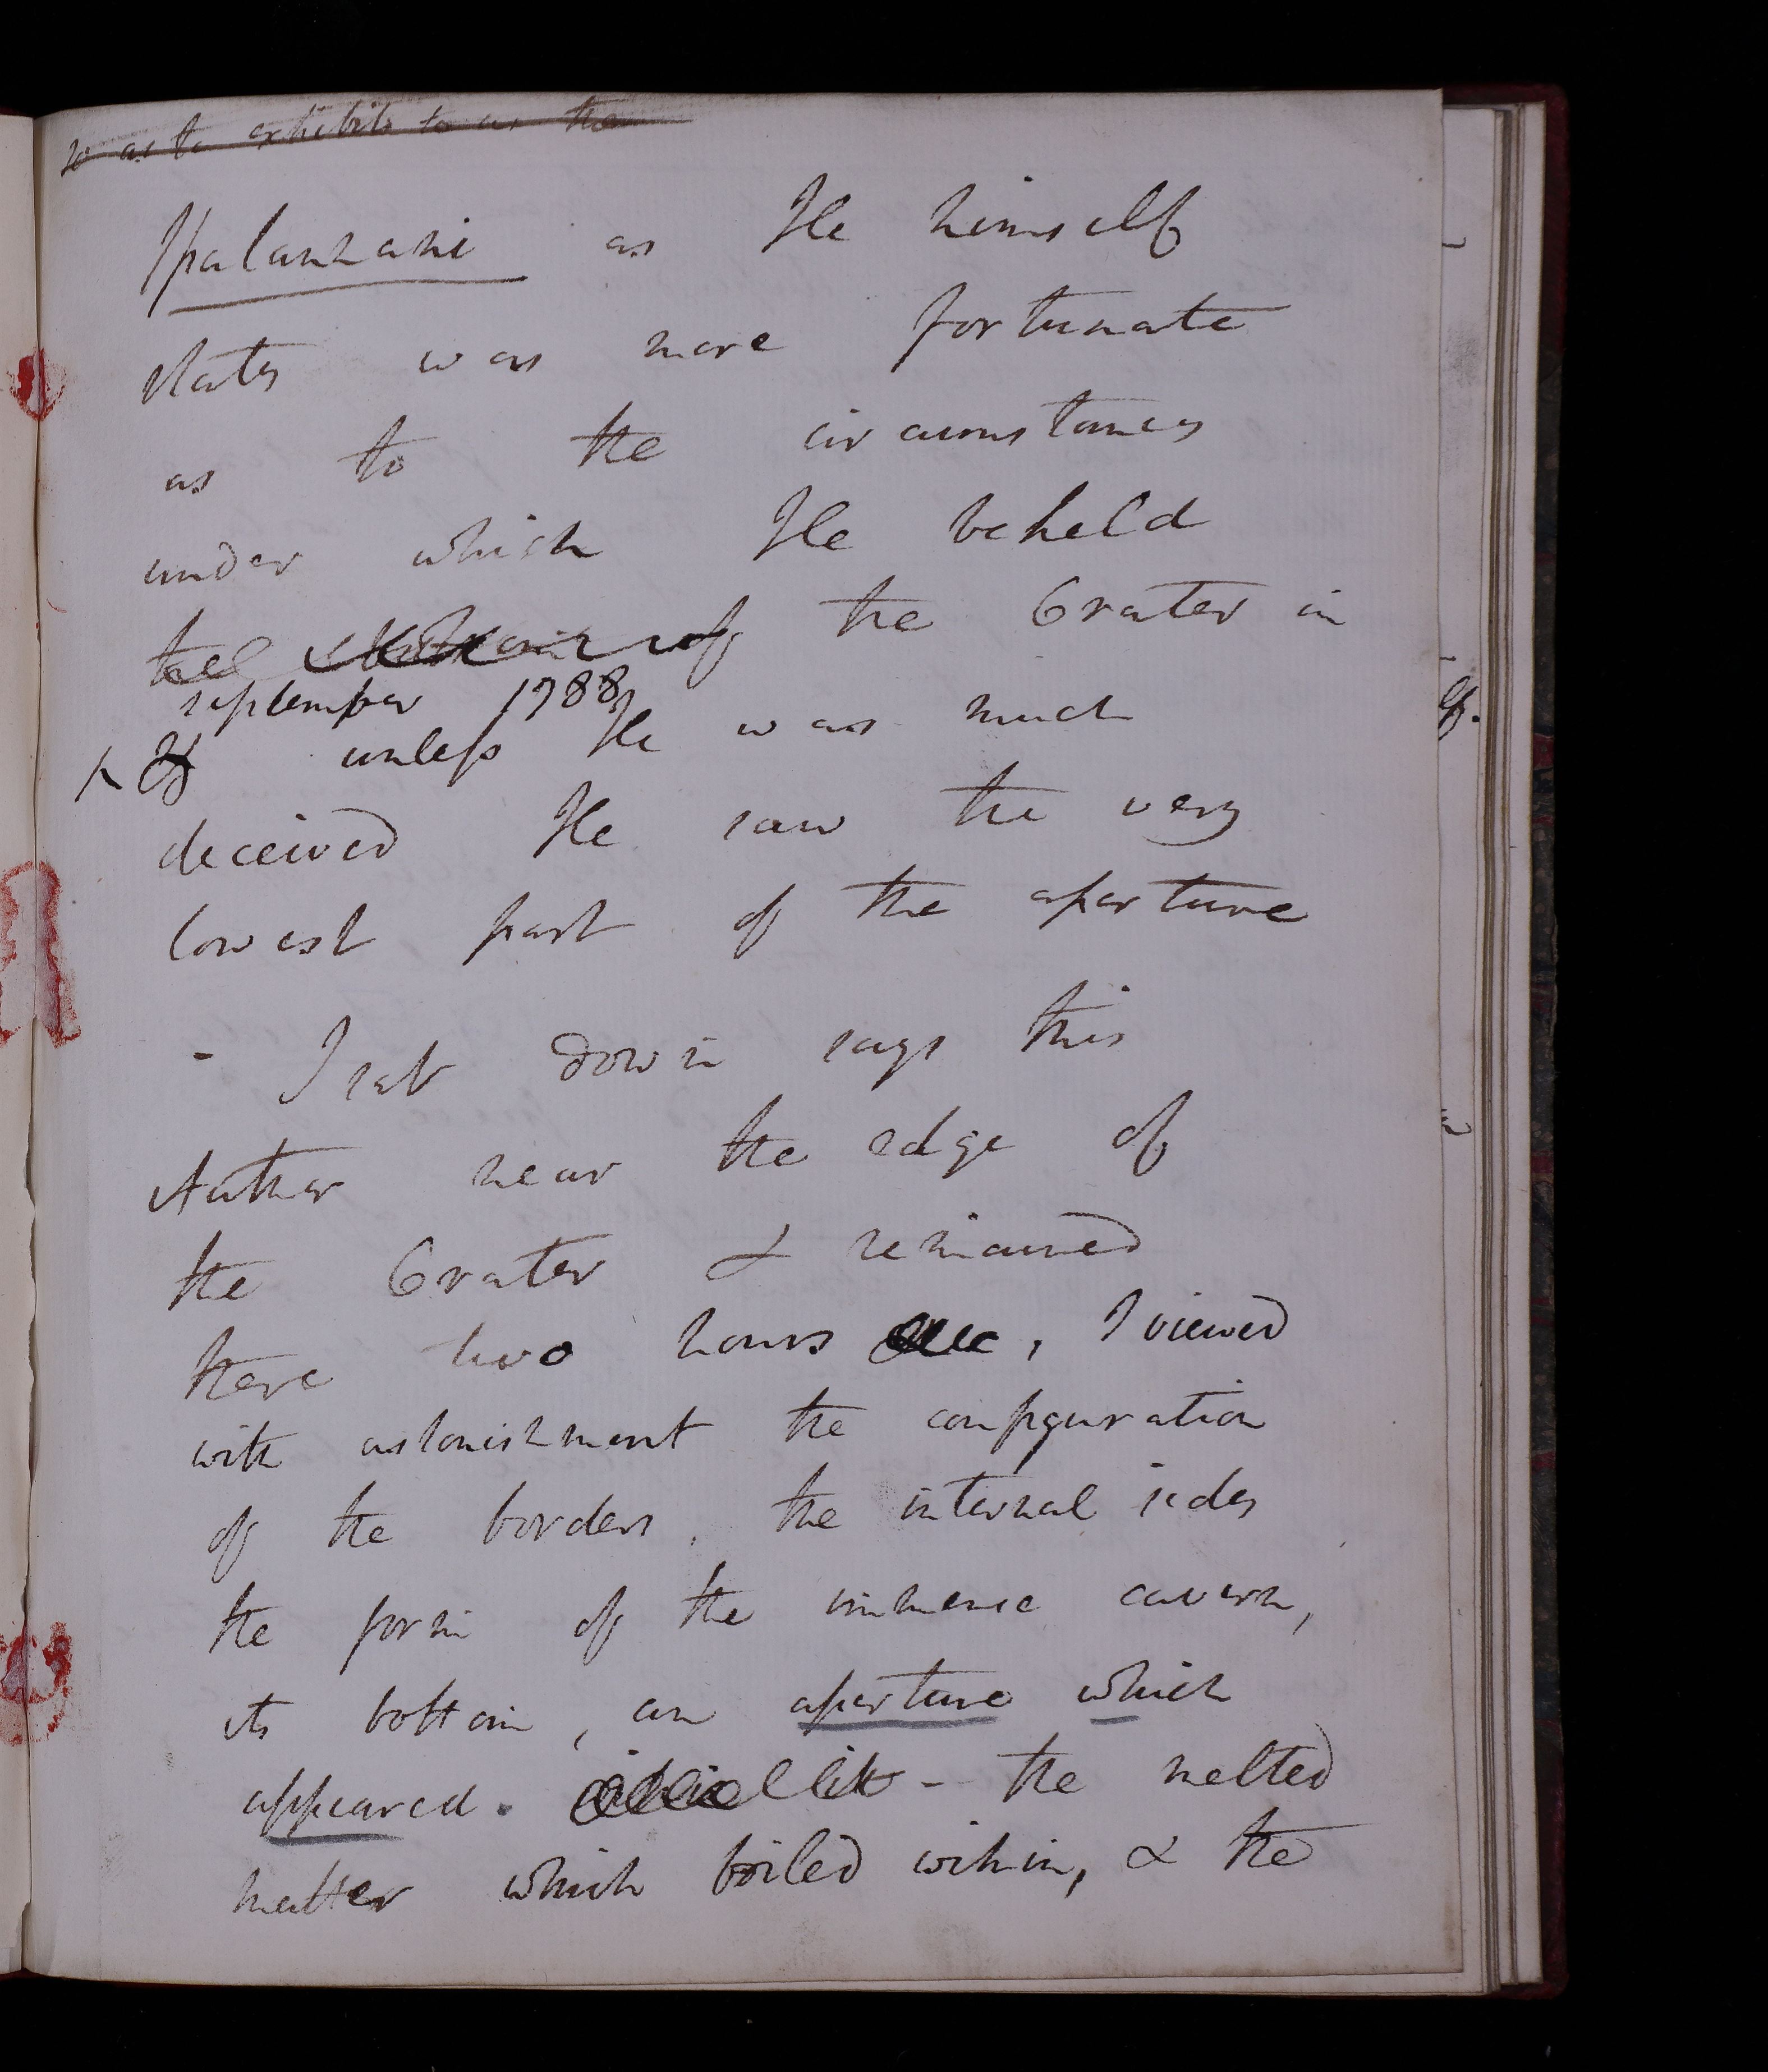 so as to exhibit to us the
Spalanzani as He himself
states was more fortunate
as to the circumstances
under which He beheld
the of the Crater in
september 1788,
unless He was much
deceived He saw the very
lowest part of the aperture
- I sat down says this
Author near the edge of
the Crater & remained
there two hours , I viewed
with astonishment the configuration
of the borders, the internal sides
the form of the immense cavern,
its bottom, an aperture which
appeared. - the melted
matter which boiled within, & the